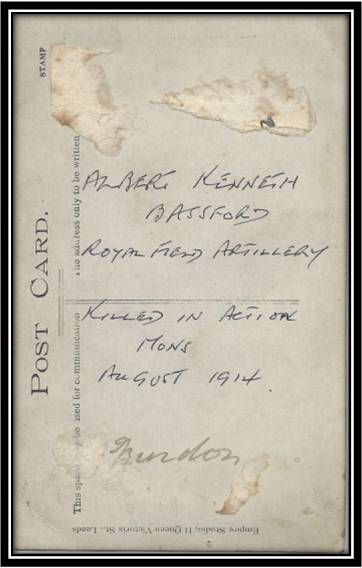 STAMP
POST CARD.
The address only to be written
This space be used for communication
ALBERT KENNETH
BASSFORD
ROYAL FIELD ARTILLERY
KILLED IN ACTION
MONS
AUGUST 1914.
Empire Studio, 11 Queen Victoria St., Leeds